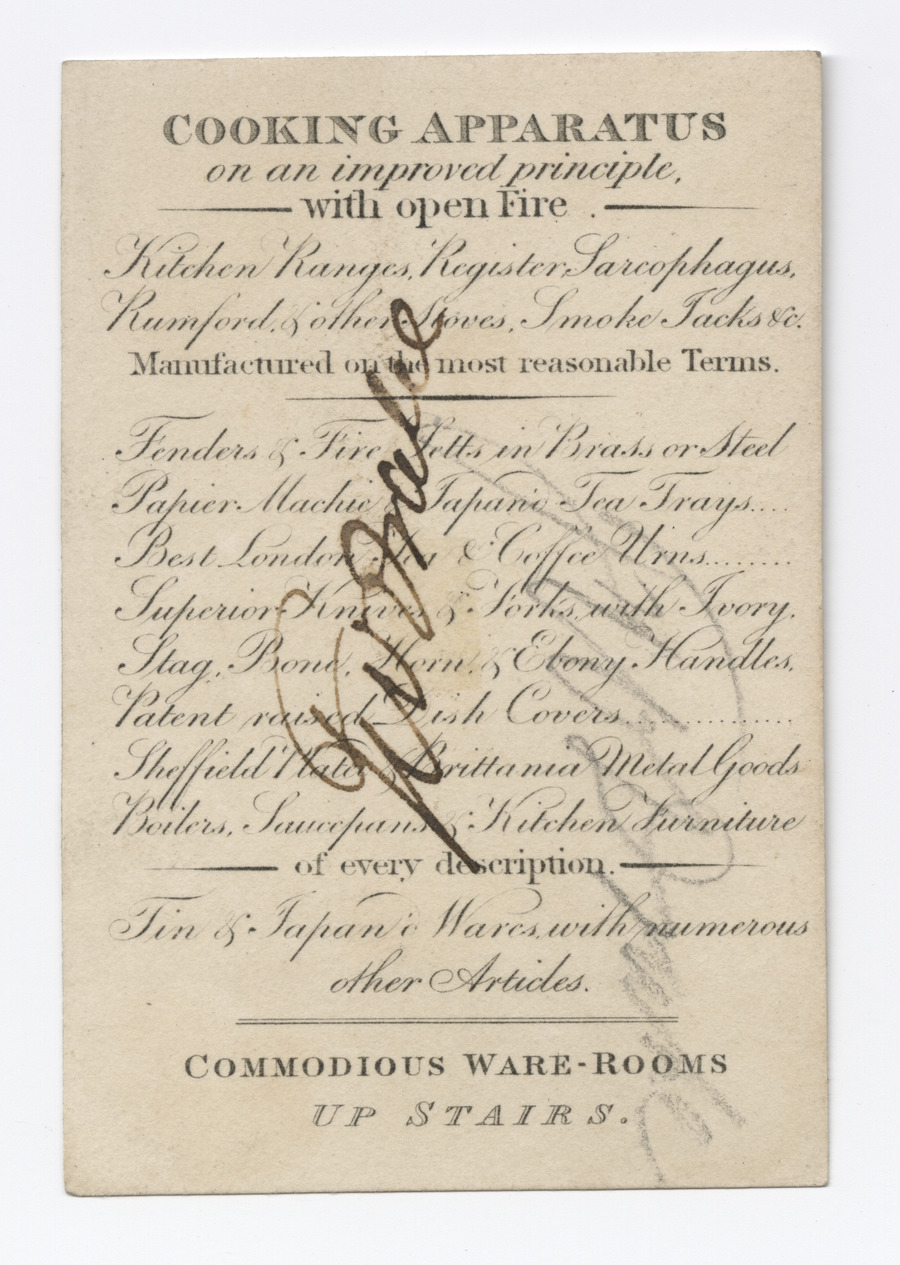 COOKING APPARATUS
on an improved principle,
with open Fire.
Kitchen Ranges, Register, Sarcophagus,
Rumford, & other Stoves, Smoke Jacks &c.
Manufactured on the most reasonable Terms.
Fenders & Fire Setts in Brass or Steel
Papier Machie & Japan'd Tea Trays....
Best London Tea & Coffee Urns........
Superior Knives & Forks, with Ivory,
Stag, Bone, Horn, & Ebony Handles,
Patent raised Dish Covers...............
Sheffield Plate & Brittania Metal Goods
Boilers, Saucepans & Kitchen Furniture
of every description.
Tin & Japan'd Wares, with numerous
other Articles.
COMMODIOUS WARE-ROOMS
UP STAIRS.